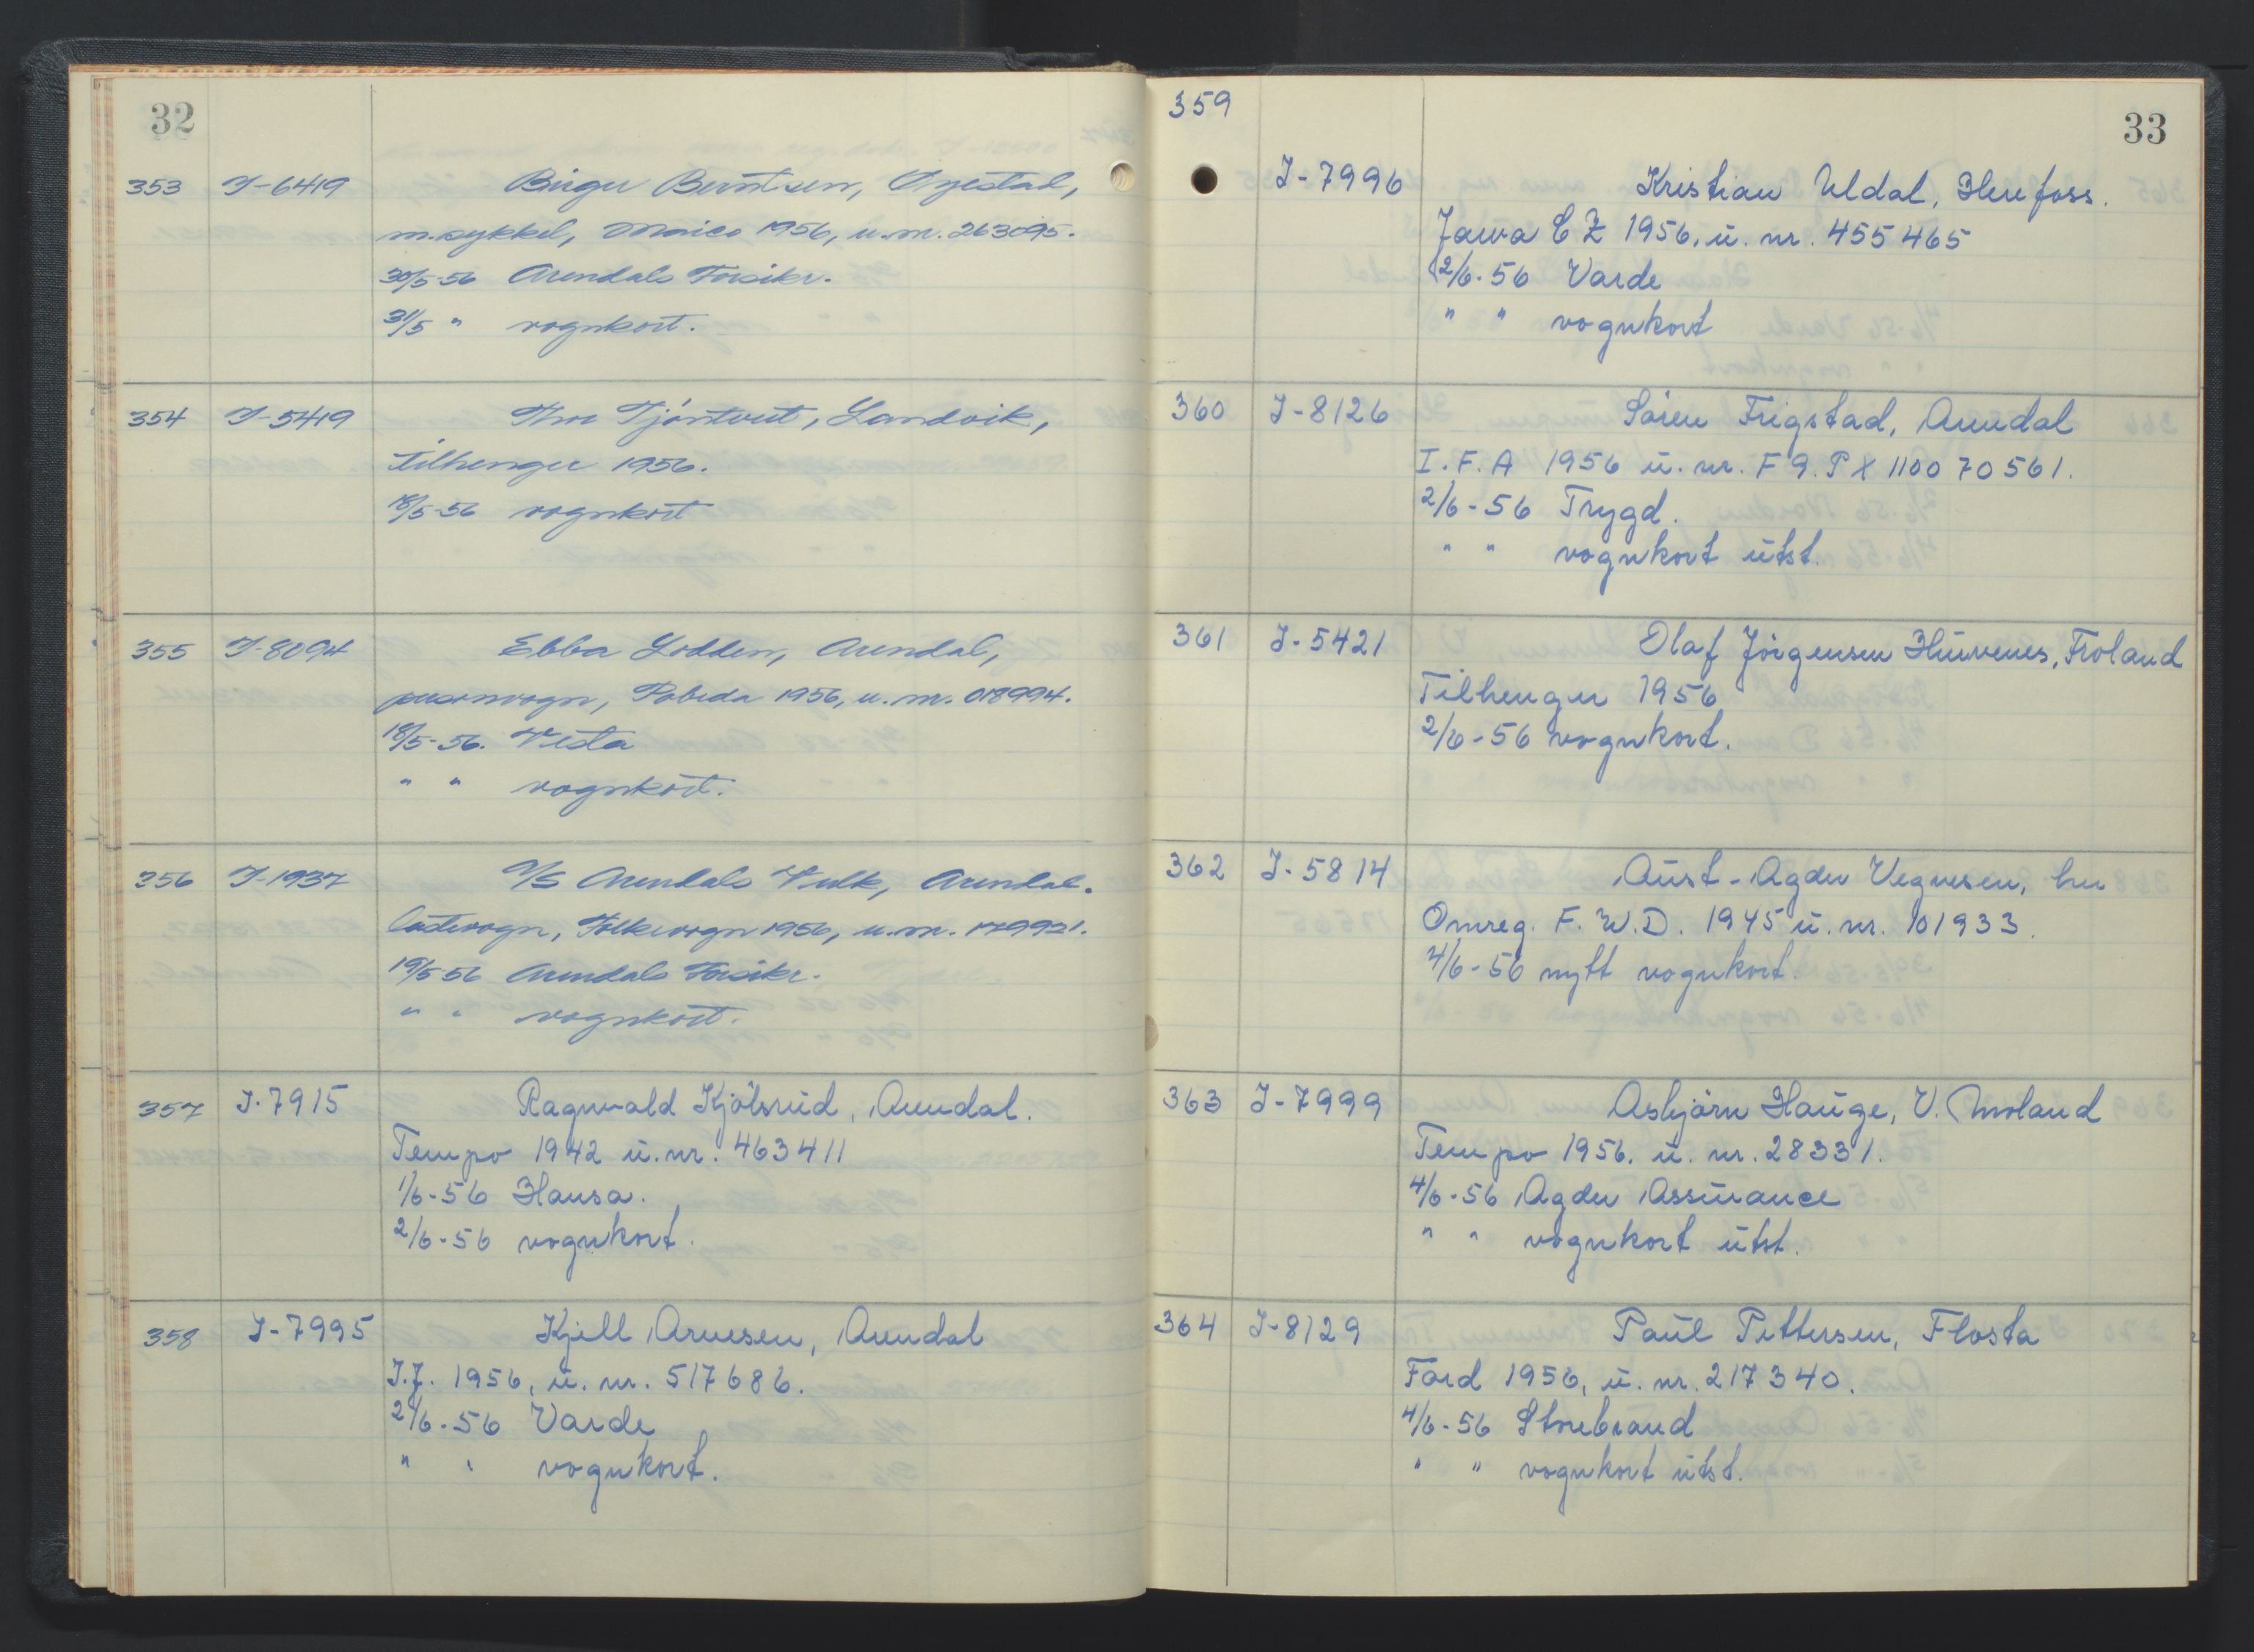 32
353 I-6419 Birger Berntsen, Øyestad,
m.sykkel, Maico 1956, u.m. 263095.
30/5-56 Arendals Forsikr.
31/5 " vognkort.
354 I-5419 Thor Tjöntveit, Landvik,
tilhenger 1956.
18/5-56 vognkort
355 I-8094 Ebba Lodden, Arendal,
personvogn, Pobeda 1956, u.m. 018994.
18/5-56. Vesta
" " vognkort.
356 I-1937 A/S Arendals Vulk, Arendal.
lastevogn, Folkevogn 1956, u.m.
19/5 56 Arendals Forsikr.
" " vognkort.
357 I-7915 Ragnvald Kjölsrud, Arendal.
Tempo 1942 u.nr. 463411
1/6-56 Hansa.
2/6-56 vognkort.
358 I-7995 Kjell Arnesen, Arendal
I.F. 1956, u. nr. 517686.
2/6-56 Varde
" " vognkort.
33
359 I-7996 Kristian Uldal, Herefoss.
Jawa CZ 1956, u. nr. 455465
2/6-56 Varde
" " vognkort
360 I-8126 Sören Frigstad, Arendal
I.F.A 1956 u. nr. F 9. PX 1100 70561.
2/6-56 Trygd.
" " vognkort utst.
361 I-5421 Olaf Jörgensen Hurvenes, Froland
Tilhenger 1956
2/6-56 vognkort.
362 I-5814 Aust-Agder Vegvesen, her
Omreg. F.W.D. 1945 u. nr. 101933.
4/6-56 nytt vognkort.
363 I-7999 Asbjörn Hauge, V. Moland
Tempo 1956. u. nr. 28331.
4/6-56 Agder Assurance
" " vognkort utst.
364 I-8129 Paul Pettersen, Flosta
Ford 1956, u. nr. 217340.
4/6-56 Storebrand
" " vognkort utst.